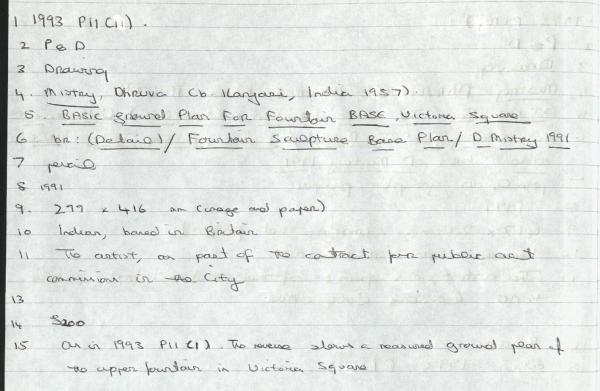 1 1993 P11 (ii).
2 P & D
3 Drawing
4. Mistry, Dhruva (b. Kanjari, India 1957).
5. BASIC Ground Plan For Fountain BASE, Victoria Square
6 br: (Detail) / Fountain Sculpture Base Plan / D Mistry 1991
7 pencil
8 1991
9. 297 x 416 mm (image and paper)
10 Indian, based in Britain
11 The artist, as part of the contract for public art
commissions in the City
13
14 S200
15 As in 1993 P11 (i). The reverse shows a measured ground plan of
the upper fountain in Victoria Square